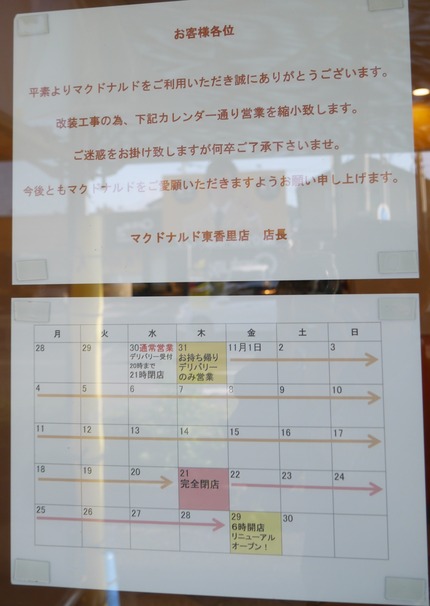 お客様各位
平素よりマクドナルドをご利用いただき誠にありがとうございます。
改装工事の為、下記カレンダー通り営業を縮小致します。
ご迷惑をお掛け致しますが何卒ご了承下さいませ。
今後ともマクドナルドをご愛顧いただきますようお願い申し上げます。
マクドナルド東香里店　店長
月 火 水 木 金 土 日
28 29 30通常営業 31 11月1日 2 3
デリバリー受付 お持ち帰り
20時まで デリバリー
21時閉店 のみ営業
4 5 6 7 8 9 10
11 12 13 14 15 16 17
18 19 20 21 22 23 24
完全閉店
25 26 27 28 29 30
6時開店
リニューアル
オープン！